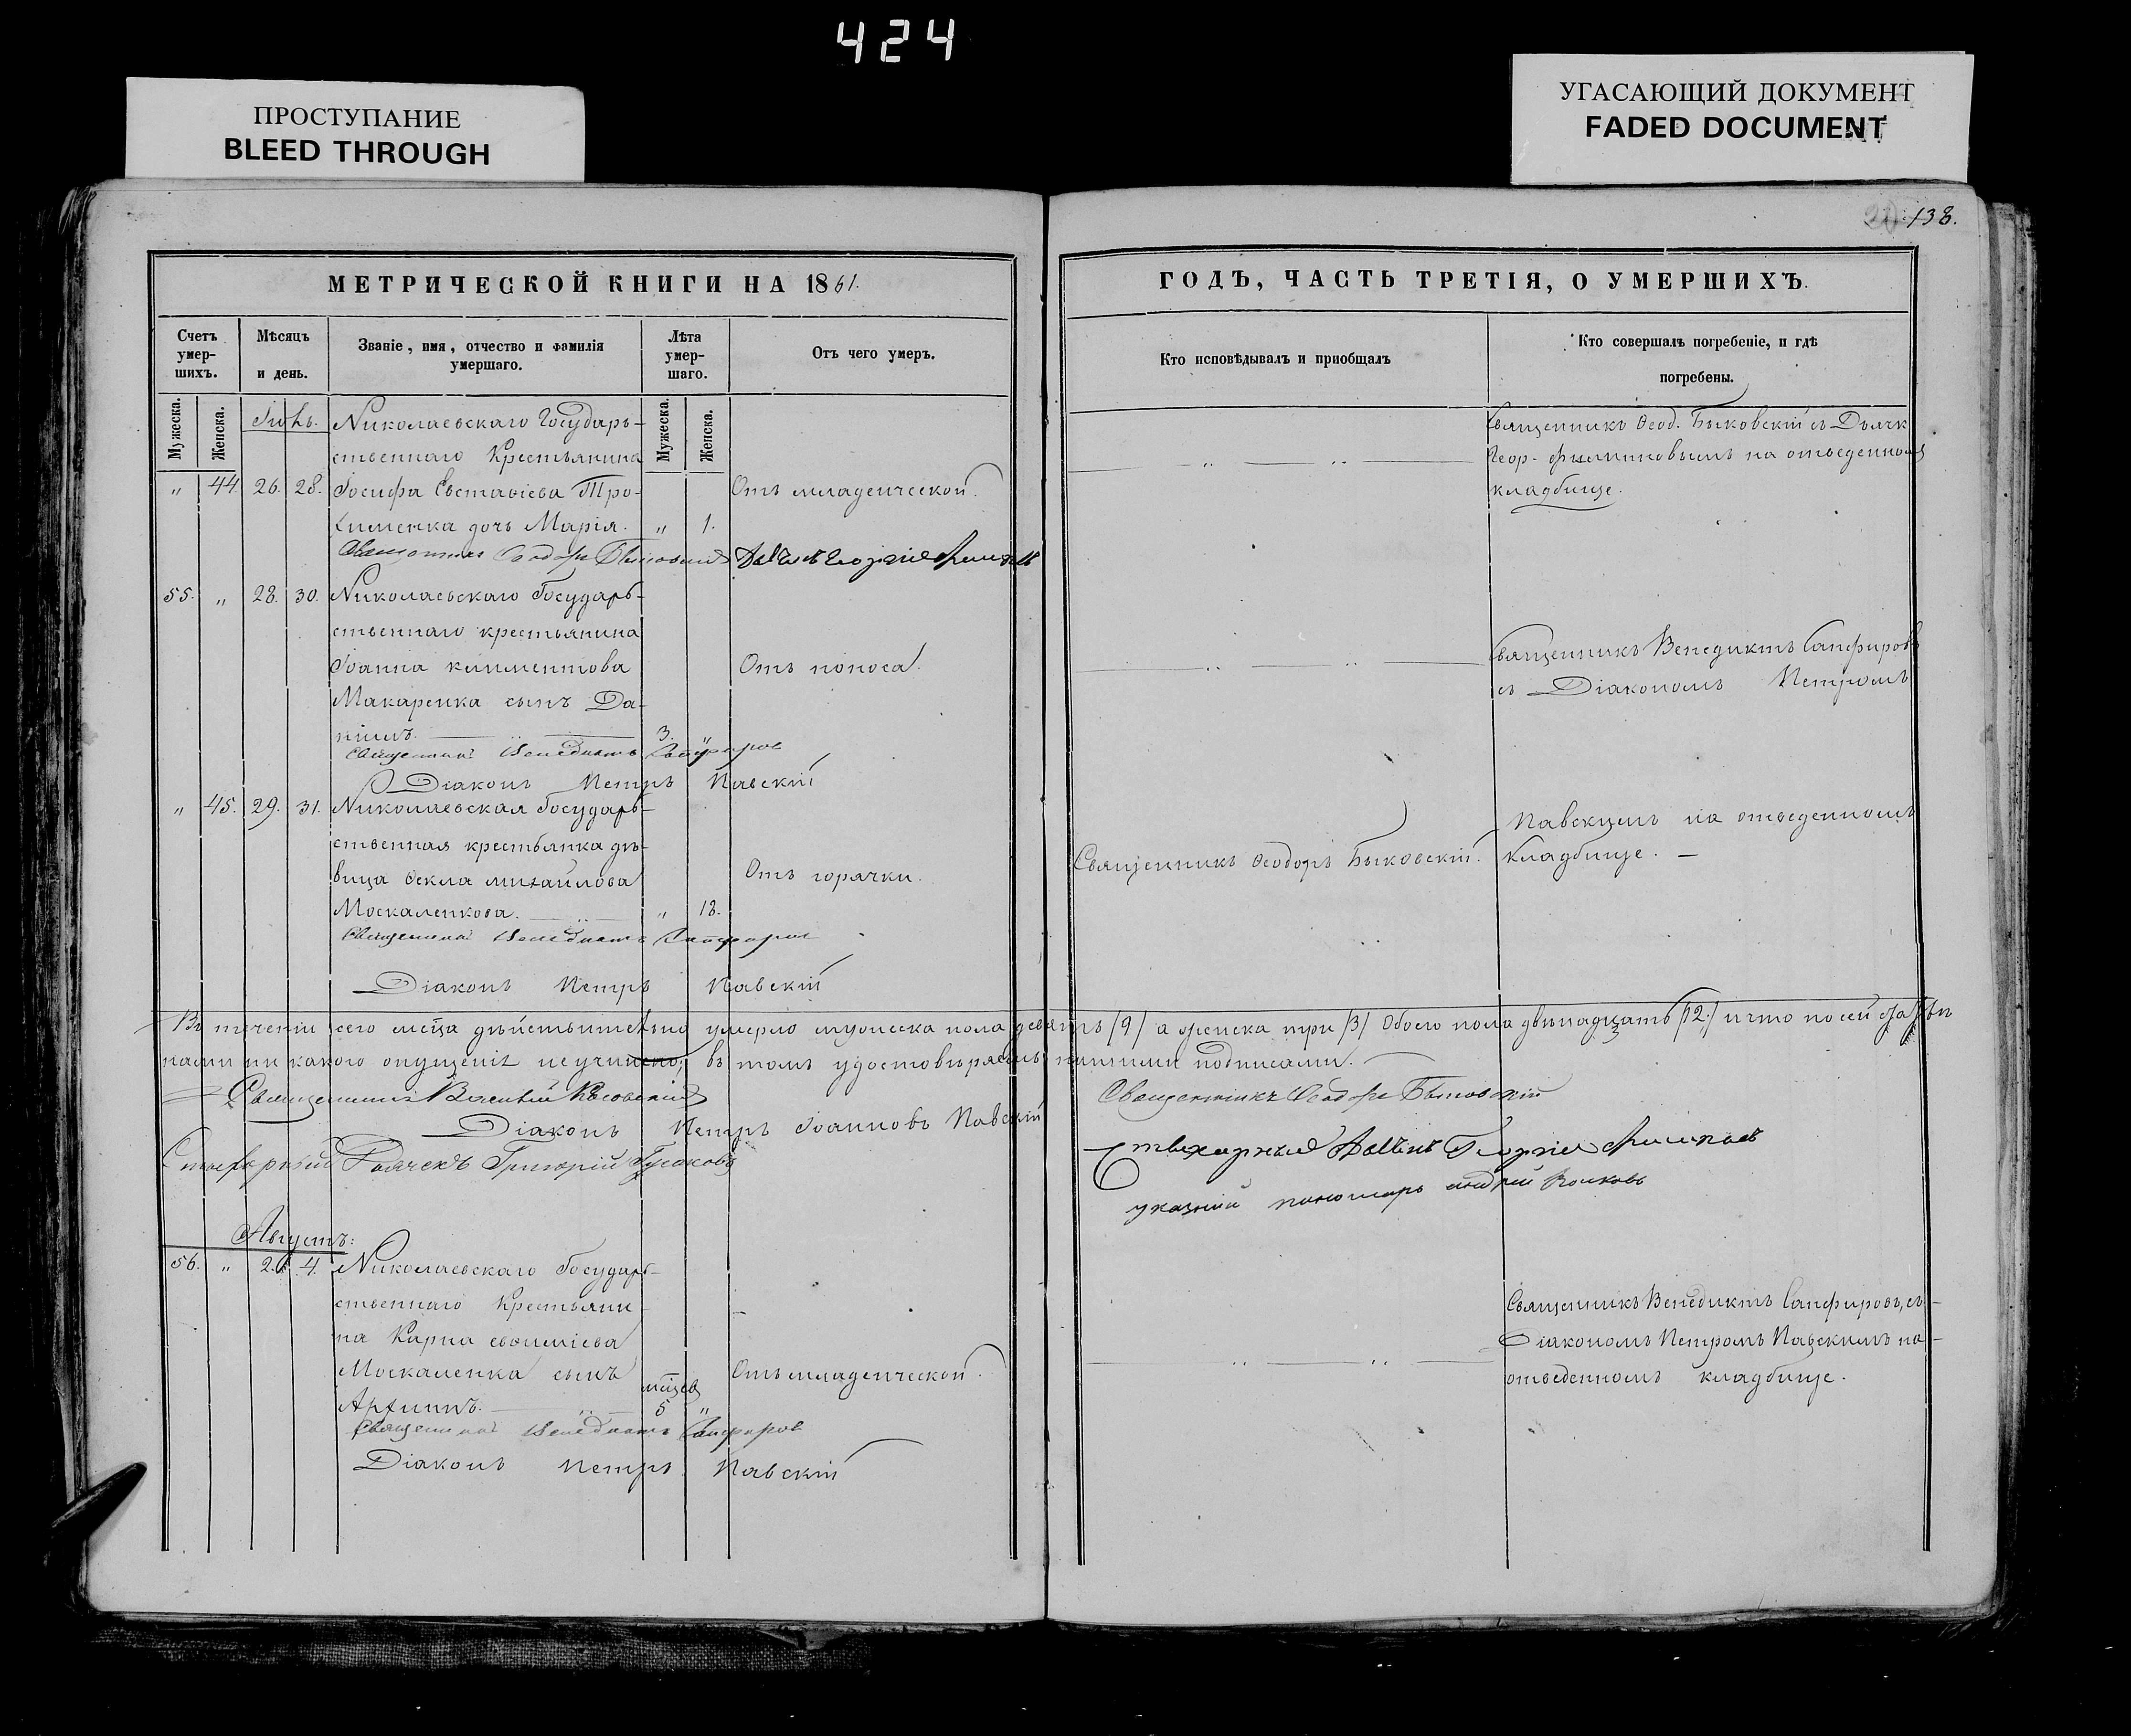 424
ПРОСТУПАНИЕ
BLEED THROUGH
УГАСАЮЩИЙ ДОКУМЕНТ
FADED DOCUMENT
138.
МЕТРИЧЕСКОЙ КНИГИ НА 1861.
Счетъ умер-шихъ.
Мѣсяцъ и день.
Званіе, имя, отчество и фамилія умершаго.
Лѣта умер-шаго.
Отъ чего умеръ.
Мужеска.
Женска.
Мужеска.
Женска.
Іюль.
Николаевскаго Государь-
ственнаго Крестьянина
„ 44. 26. 28. Іосифа Евстафіева Тро-
Отъ младенческой.
хименка дочь Марія. „ 1.
Священникъ Ѳеодоръ Быковскій
55. „ 28. 30. Николаевскаго Государь-
ственнаго крестьянина
Іоанна климентова
Отъ поноса.
Макаренка сынъ Да-
ніилъ. 3. „
Священникъ Венедиктъ Сапфировъ
Діаконъ Петръ Павскій
„ 45. 29. 31. Николаевская Государь-
ственная крестьянка дѣ-
вица Ѳекла михайлова
Отъ горячки.
Москаленкова. „ 18.
Священникъ Венедиктъ Сапфировъ
Діаконъ Петръ Павскій
Въ теченіи сего мѣсца дѣйствительно умерло мужеска пола девять /9/ а женска три /3/ Обоего пола двѣнадцать /12./ и что по сей
нами ни какого опущенія неучинено, въ томъ удостовѣряемъ нашими подписами.
Священникъ Василій
Діаконъ Петръ Іоанновъ Павскій
Стихарный Дьячекъ Григорій Гусаковъ
Августъ:
56. „ 2. 4. Николаевскаго Государь-
ственнаго Крестьяни-
на Карпа евѳиміева
Москаленка сынъ
Отъ младенческой.
мѣсцев
Архипъ. 5 „
Священникъ Венедиктъ Сапфировъ
Діаконъ Петръ Павскій
ГОДЪ, ЧАСТЬ ТРЕТІЯ, О УМЕРШИХЪ.
Кто исповѣдывалъ и приобщалъ
Кто совершалъ погребеніе, и гдѣ погребены.
Священникъ Ѳеод. Быковскій съ Дьячк
Геор. филиповымъ на отведенномъ
кладбище.
Священникъ Венедиктъ Сапфировъ
съ Діакономъ Петромъ
Павскимъ на отведенномъ
Священникъ Ѳеодоръ Быковскій.
кладбище. —
Священникъ Ѳеодоръ Быковскій
Стихарный Георгій
указный пономарь андрей Волковъ
Священникъ Венедиктъ Сапфировъ, съ
Діакономъ Петромъ Павскимъ на
отведенномъ кладбище.